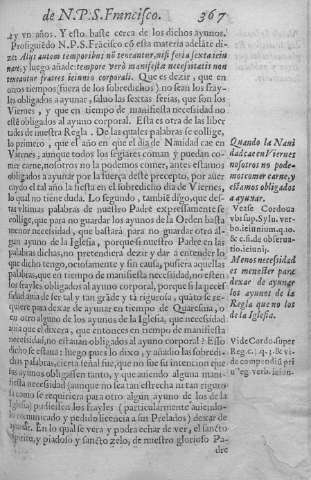 de N.P.S. Francisco. 367
ay vn años. Y esto baste cerca de los dichos ayunos.
Prosiguiẽdo N.P.S. Frãcisco cõ esta materia adelãte di-
ze: Alys autem temporibus nõ teneantur, nisi feria sexta ieiu
nare, y luego añade: tempore verò manifesta necessitatis non
teneantur fratres ieiunio corporali. Que es dezir, que en
otros tiempos (fuera de los sobredichos) no sean los fray-
les obligados a ayunar, saluo las sextas ferias, que son los
Viernes, y que en tiempo de manifiesta necessidad no
esten obligados al ayuno corporal. Esta es otra de las liber
tades de nuestra Regla. De las quales palabras se collige,
lo primero, que el año en que el dia de Nauidad cae en
Viernes, aunque todos los seglares coman y puedan co-
mer carne, nosotros no la podemos comer, antes estamos
obligados a ayunar por la fuerça deste precepto, por auer
caydo el tal año la fiesta en el sobredicho dia de Viernes,
lo qual no tiene duda. Lo segundo, tambiẽ digo, que des-
tas vltimas palabras de nuestro Padre expressamente se
collige, que para no guardar los ayunos de la Orden basta
menor necessidad, que bastarà para no guardar otro al-
gun ayuno de la Iglesia, porque si nuestro Padre en las
palabras dichas, no pretendiera dezir y dar a entender lo
que dicho tengo, notamente y sin causa, pusiera aquellas
palabras, que en tiempo de manifiesta necessidad, no esten
los frayles obligados al ayuno corporal, porque si la neces-
sidad auia de ser tal y tan grãde y tã rigurosa, quãto se re-
quiere para dexar de ayunar en tiempo de Quaresma, o
en otro alguno de los ayunos de la Iglesia, que necessidad
auia que el dixera, que entonces en tiempo de manifiesta
necessidad, no estauan obligados al ayuno corporal? Esso
dicho se estaua: luego pues lo dixo, y añadio las sobredi-
chas palabras, cierta señal fue, que no fue su intencion que
sus ayunos obligassen tanto, y que auiendo alguna mani-
fiesta necessidad (aunque no sea tan estrecha ni tan riguro-
sa como se requiriera para otro algun ayuno de los de la
Iglesia) pudiessen los frayles (particularmente auiendo-
lo comunicado y pedido licencia a sus Prelados) dexar de
ayunar. En lo qual se vera y podra echar de ver, el sancto
y piadoso y sancto zelo, de nuestro glorioso Pa-
dre
Quando la Naui
dad cae en Viernes
nosotros no pode-
mos comer carne, y
estamos obligados
a ayunar.
Vease Cordoua
vbi sup. Sylu. ver-
bo. ieiunium. q. 10.
& c. si. de obserua-
tio. ieiunij.
Menos necessidad
es menester para
dexar de ayunar
los ayunos de la
Regla que no los
de la Iglesia.
Vide Cordo. super
Reg. c. 3. q. 3. & vi-
de compendiũ pri
uileg. verb. ieiun-